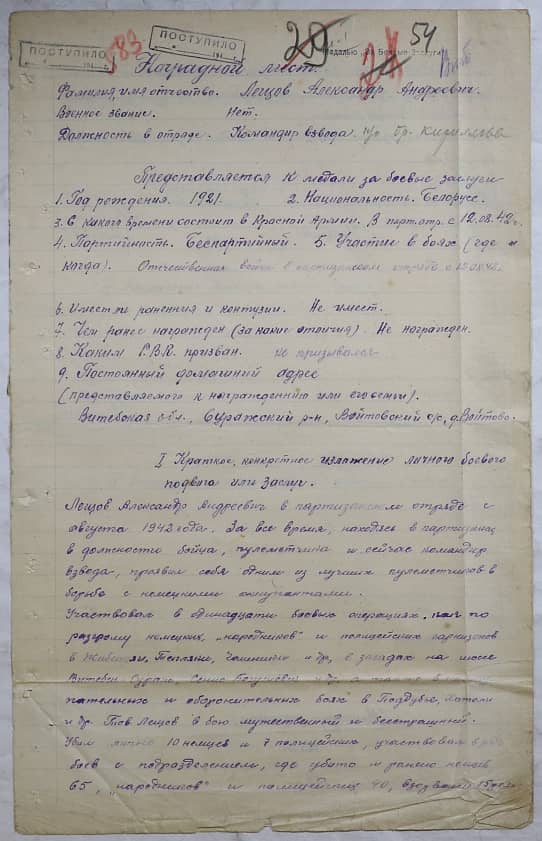 ПОСТУПИЛО
ПОСТУПИЛО
583
29
24
54
медалью "За Боевые Заслуги"
Наградной лист.
Фамилия, имя отчество. Лещов Александр Андреевич.
Военное звание. Нет.
Должность в отряде. Командир взвода п/о бр. Кириллова
Представляется к медали за боевые заслуги
1. Год рождения. 1921. 2. Национальность. Белорус.
3. С какого времени состоит в Красной Армии. В парт. отр. с 12.08.42 г.
4. Партийность. Беспартийный. 5. Участие в боях (где и
когда). Отечественная война в партизанском отряде с 12.08.42.
6. Имеет ли ранения и контузии. Не имеет.
7. Чем ранее награжден (за какие отличия). Не награжден.
8. Каким Р.В.К. призван. не призывался
9. Постоянный домашний адрес
(представляемого к награждению или его семьи).
Витебская обл., Суражский р-н, Войтовский с/с, д. Войтово.
I Краткое, конкретное изложение личного боевого
подвига или заслуг.
Лещов Александр Андреевич в партизанском отряде с
августа 1942 года. За все время, находясь в партизанах
в должности бойца, пулеметчика и сейчас командир
взвода, проявил себя одним из лучших пулеметчиков в
борьбе с немецкими оккупантами.
Участвовал в одинадцати боевых операциях, по
разгрому немецких, „народников" и полицейских гарнизонов
в и др., в засадах на шоссе
Витебск Сураж, и др. а также в
и оборонительных боях в
и др. Тов Лещов в бою мужественный и бесстрашный.
Убил лично 10 немцев и 7 полицейских, участвовал в
боев с подразделением, где убито и ранено немцев
65, „народников" и полицейских 40, взорвано